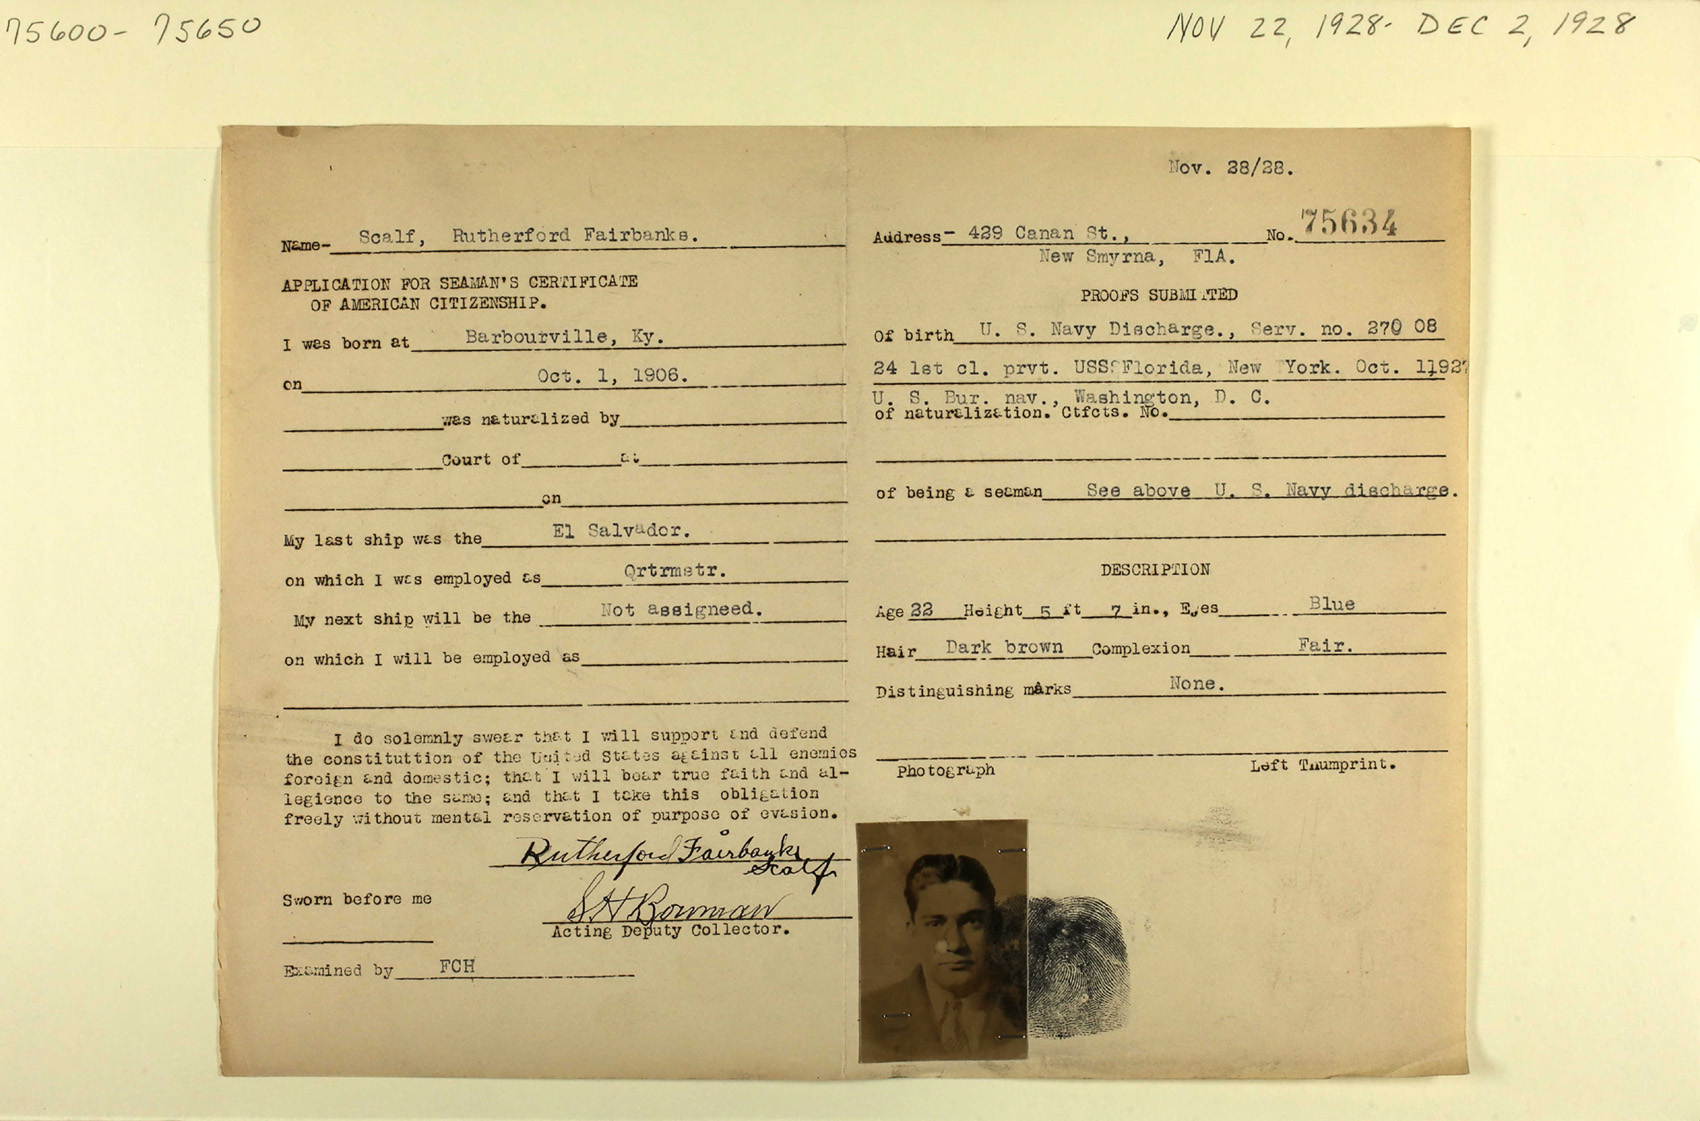 75600- 75650
NOV 22, 1928- DEC 2, 1928
Nov. 28/28.
Name- Scalf, Rutherford Fairbanks.
APPLICATION FOR SEAMAN'S CERTIFICATE
OF AMERICAN CITIZENSHIP.
I was born at Barbourville, Ky.
on Oct. 1, 1906.
was naturalized by
Court of at
on
My last ship was the El Salvador.
on which I was employed as Qrtrmstr.
My next ship will be the Not assigneed.
on which I will be employed as
I do solemnly swear that I will support and defend
the constituttion of the United States against all enemies
foreign and domestic; that I will bear true faith and al-
legience to the same; and that I take this obligation
freely without mental reservation of purpose of evasion.
Rutherford Fairbanks
Scalf
Sworn before me
S H Bowman
Acting Deputy Collector.
Examined by FCH
Address- 429 Canan St., No. 75634
New Smyrna, FlA.
PROOFS SUBMITTED
Of birth U. S. Navy Discharge., Serv. no. 270 08
24 1st cl. prvt. USS Florida, New York. Oct. 11927
U. S. Bur. nav., Washington, D. C.
of naturalization. Ctfcts. No.
of being a seaman See above U. S. Navy discharge.
DESCRIPTION
Age 22 Height 5 ft 7 in., Eyes Blue
Hair Dark brown Complexion Fair.
Distinguishing marks None.
Photograph Left Thumprint.